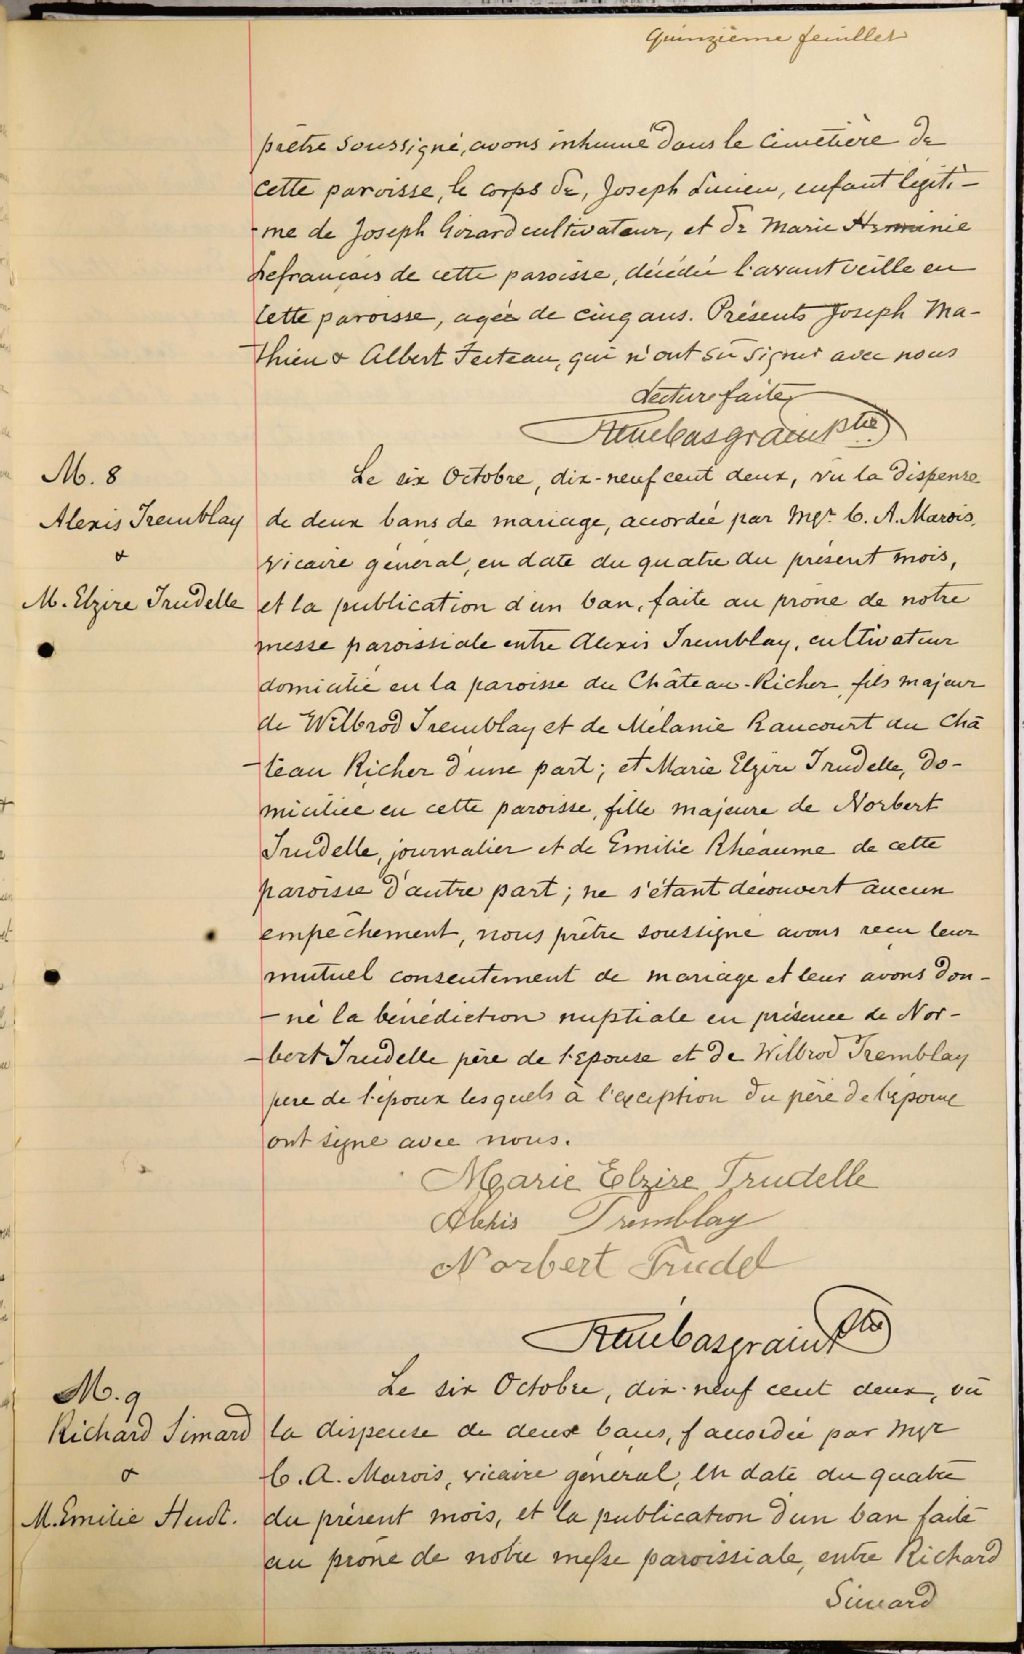 Quinzième feuillet
prêtre soussigné, avons inhumé dans le cimetière de
cette paroisse, le corps de, Joseph Lucien, enfant légiti-
-me de Joseph Girard cultivateur, et de Marie Herminie
Lefrançois de cette paroisse, décédé l'avant veille en
cette paroisse, agée de cinq ans. Présents Joseph Ma-
thieu & Albert Fecteau, qui n'ont sû signer avec nous
Lecture faite
René Casgrain Ptre
M. 8
Alexis Tremblay
&
M. Elzire Trudelle
Le six Octobre, dix-neuf cent deux, vû la dispense
de deux bans de mariage, accordée par Mgr C. A. Marois,
vicaire général, en date du quatre du présent mois,
et la publication d'un ban, faite au prône de notre
messe paroissiale entre Alexis Tremblay, cultivateur
domicilié en la paroisse du Château-Richer, fils majeur
de Wilbrod Tremblay et de Mélanie Rancourt du Châ
-teau Richer d'une part; et Marie Elzire Trudelle, do-
miciliée en cette paroisse, fille majeure de Norbert
Trudelle, journalier et de Emilie Rhéaume de cette
paroisse d'autre part; ne s'étant découvert aucun
empêchement, nous prêtre soussigné avons reçu leur
mutuel consentement de mariage et leur avons don-
-né la bénédiction nuptiale en présence de Nor-
-bert Trudelle père de l'Epouse et de Wilbrod Tremblay
pere de l'époux lesquels à l'exception du père de l'époux
ont signé avec nous.
Marie Elzire Trudelle
Alexis Tremblay
Norbert Trudel
René Casgrain Ptre
M. 9
Richard Simard
&
M. Emilie Huot.
Le six Octobre, dix-neuf cent deux, vû
la dispense de deux bans, accordée par Mgr
C. A. Marois, vicaire général, en date du quatre
du présent mois, et la publication d'un ban faite
au prône de notre messe paroissiale, entre Richard
Simard